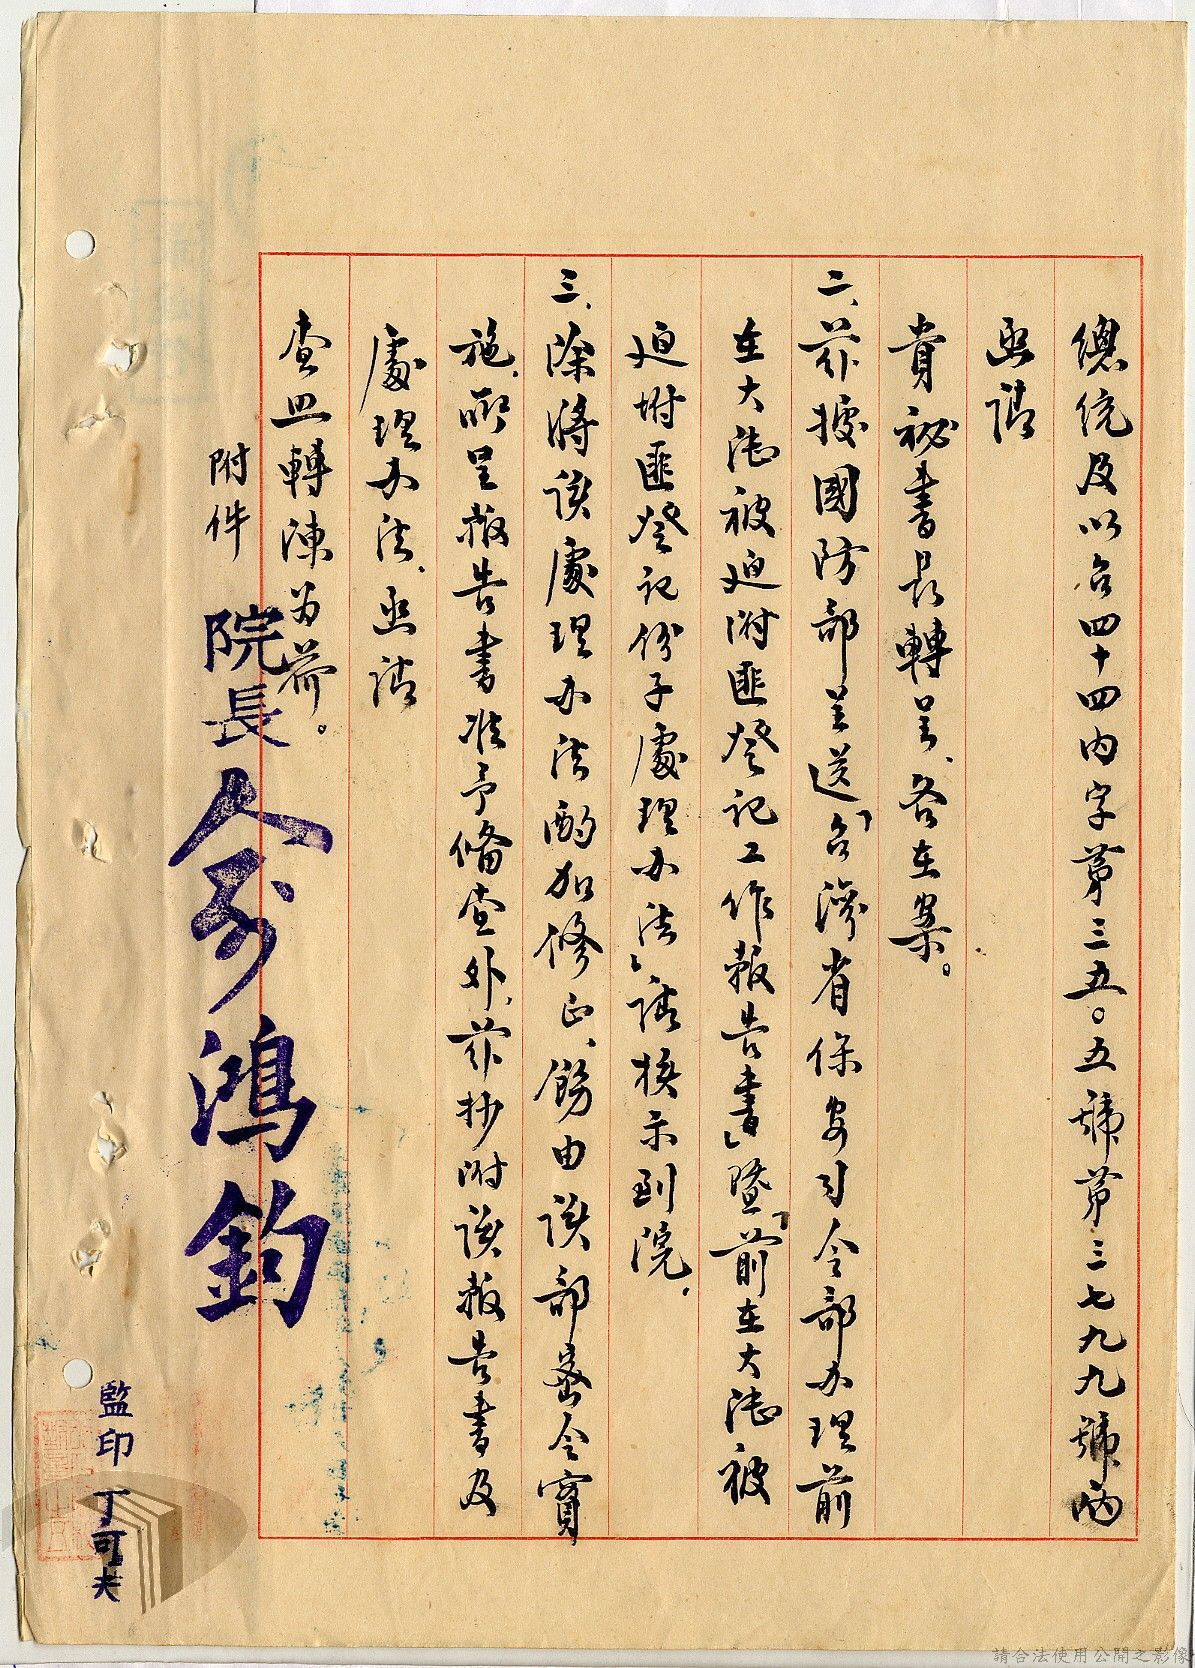 總統及以台四十四內字第三五〇五號第三七九九號兩
函請
貴祕書長轉呈、各在案。
二、茲據國防部呈送「台灣省保安司令部办理前
在大陸被迫附匪登記工作報告書」暨「前在大陸被
迫坿匪登記份子處理办法」請核示到院.
三、除將該處理办法酌加修正、飭由該部密令實
施、所呈報告書准予備查外、茲抄附該報告書及
處理办法、函請
查照轉陳为荷。
附件
院長俞鴻鈞
監印丁可夫
請合法使用公開之影像